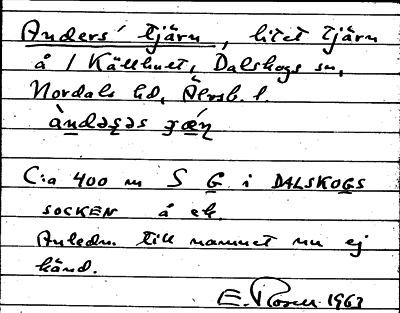 Anders' tjärn, litet tjärn
å / Källhult, Dalskogs sn,
Nordals hd, Älvsb. l.
àndəʂəs ɟæ̀ɳ
C:a 400 m S G i DALSKOGS
SOCKEN å ek.
Anledn. till namnet nu ej
känd.
E. Rosen 1963